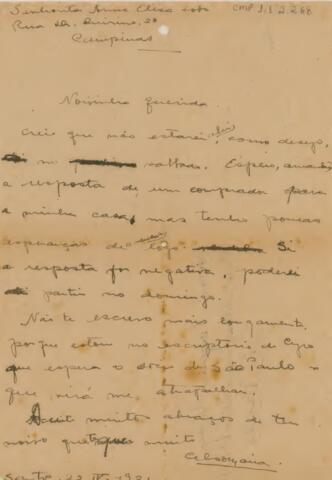 Senhorita Anna Elisa
Rua Dr. Quirino, 20
CMP 1.1.2.288
Campinas
Noivinha querida.
Creio que não estarei, como desejo,
no sabbado. Espero, amanhã
a resposta de um comprador para
a minha casa, mas tenho poucas
esperanças de logo. Si
a resposta for negativa, poderei
partir no domingo.
Não te escrevo mais longamente
porque estou no escriptorio de Cyro
que espera o de São Paulo e
que virá me atrapalhar.
muitos abraços de teu
noivo que muito